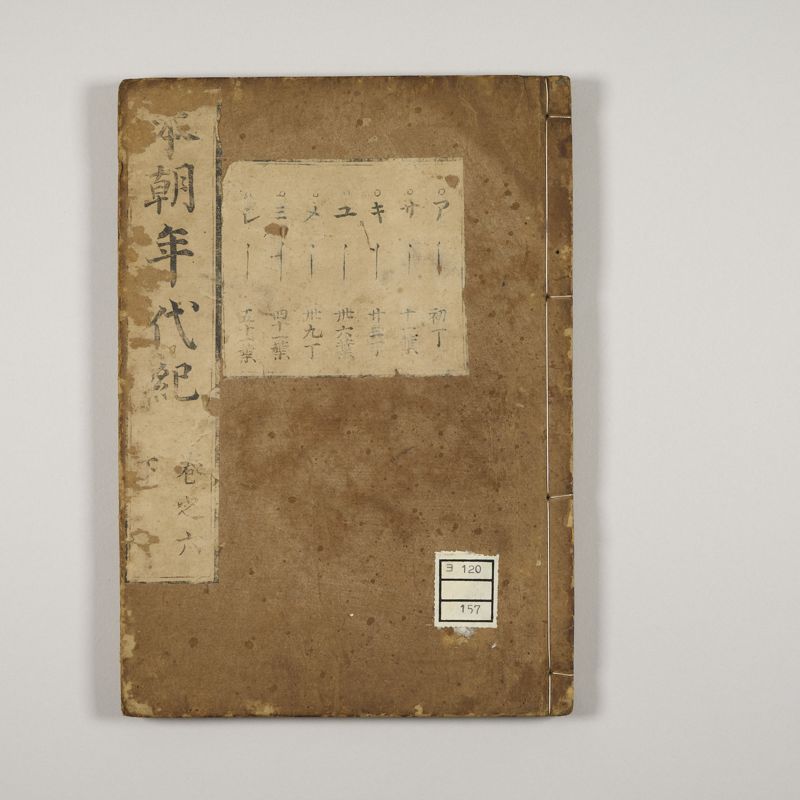 本朝年代紀
巻之六
下
ア 初丁
サ 十一葉
キ 廿三丁
ユ 卅六葉
メ 卅九丁
ミ 四十一葉
ヒ 五十葉
ヨ 120
157